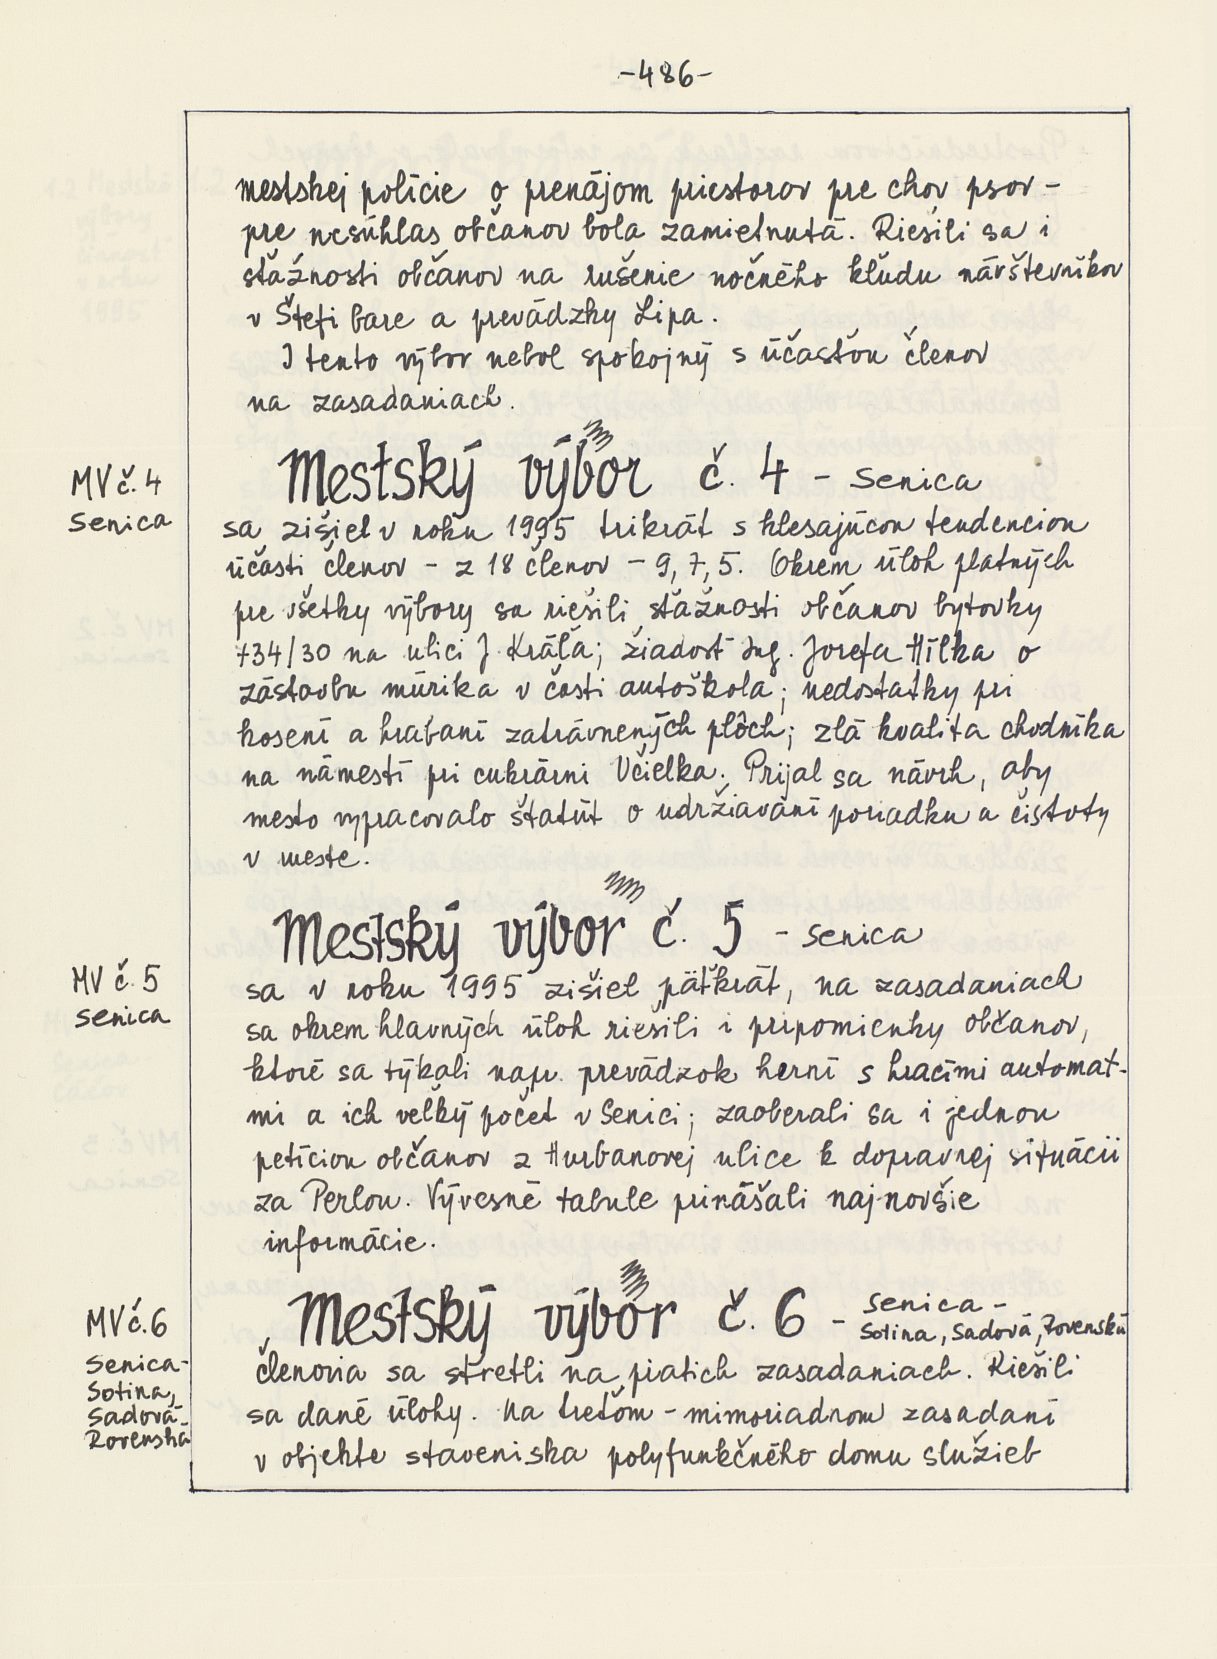 -486-
mestskej polície o prenájom priestorov pre chov psov -
pre nesúhlas občanov bola zamietnutá. Riešili sa i
sťažnosti občanov na rušenie nočného kľudu návštevníkov
v Štefi bare a prevádzky Lipa.
I tento výbor nebol spokojný s účasťou členov
na zasadaniach.
MV č. 4
Senica
Mestský výbor č. 4 - Senica
sa zišiel v roku 1995 trikrát s klesajúcou tendenciou
účasti členov - z 18 členov - 9, 7, 5. Okrem úloh platných
pre všetky výbory sa riešili sťažnosti občanov bytovky
734/30 na ulici J. Kráľa; žiadosť Ing. Jozefa Hílka o
zástavbu múrika v časti autoškola; nedostatky pri
kosení a hrabaní zatrávnených plôch; zlá kvalita chodníka
na námestí pri cukrárni Včielka. Prijal sa návrh, aby
mesto vypracovalo štatút o udržiavání poriadku a čistoty
v meste.
MV č. 5
Senica
Mestský výbor č. 5 - Senica
sa v roku 1995 zišiel päťkrát, na zasadaniach
sa okrem hlavných úloh riešili i pripomienky občanov,
ktoré sa týkali napr. prevádzok herní s hracími automat-
mi a ich veľký počet v Senici; zaoberali sa i jednou
petíciou občanov z Hurbanovej ulice k dopravnej situácii
za Perlou. Vývesné tabule prinášali najnovšie
informácie.
MV č. 6
Senica-
Sotina,
Sadová-
Rovenská
Mestský výbor č. 6 - Senica -
Sotina, Sadová, Rovenská
Členovia sa stretli na piatich zasadaniach. Riešili
sa dané úlohy. Na treťom - mimoriadnom zasadaní
v objekte staveniska polyfunkčného domu služieb